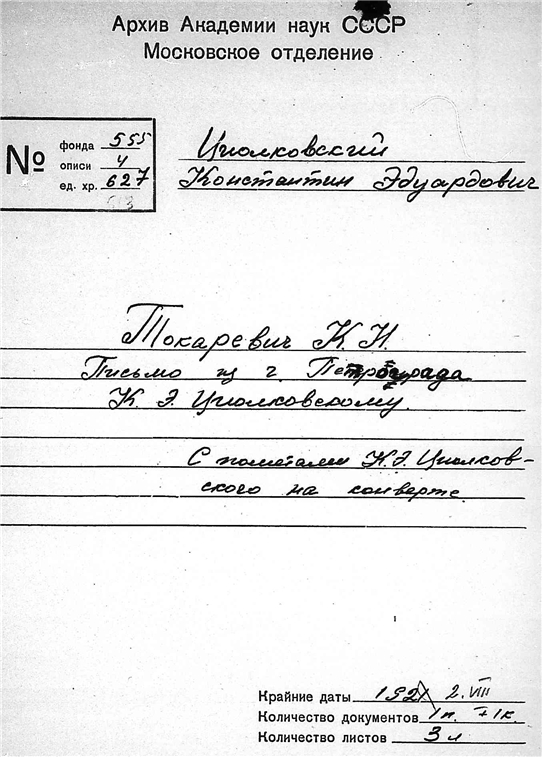 Архив Академии наук СССР
Московское отделение
№
фонда 555
описи 4
ед. хр. 627
Циолковский
Константин Эдуардович
Токаревич К. Н.
Письмо из г. Петрограда
К. Э. Циолковскому.
С пометами К. Э. Циолков-
ского на конверте
Крайние даты 1921 2.VIII
Количество документов 1п. + 1к.
Количество листов 3 л